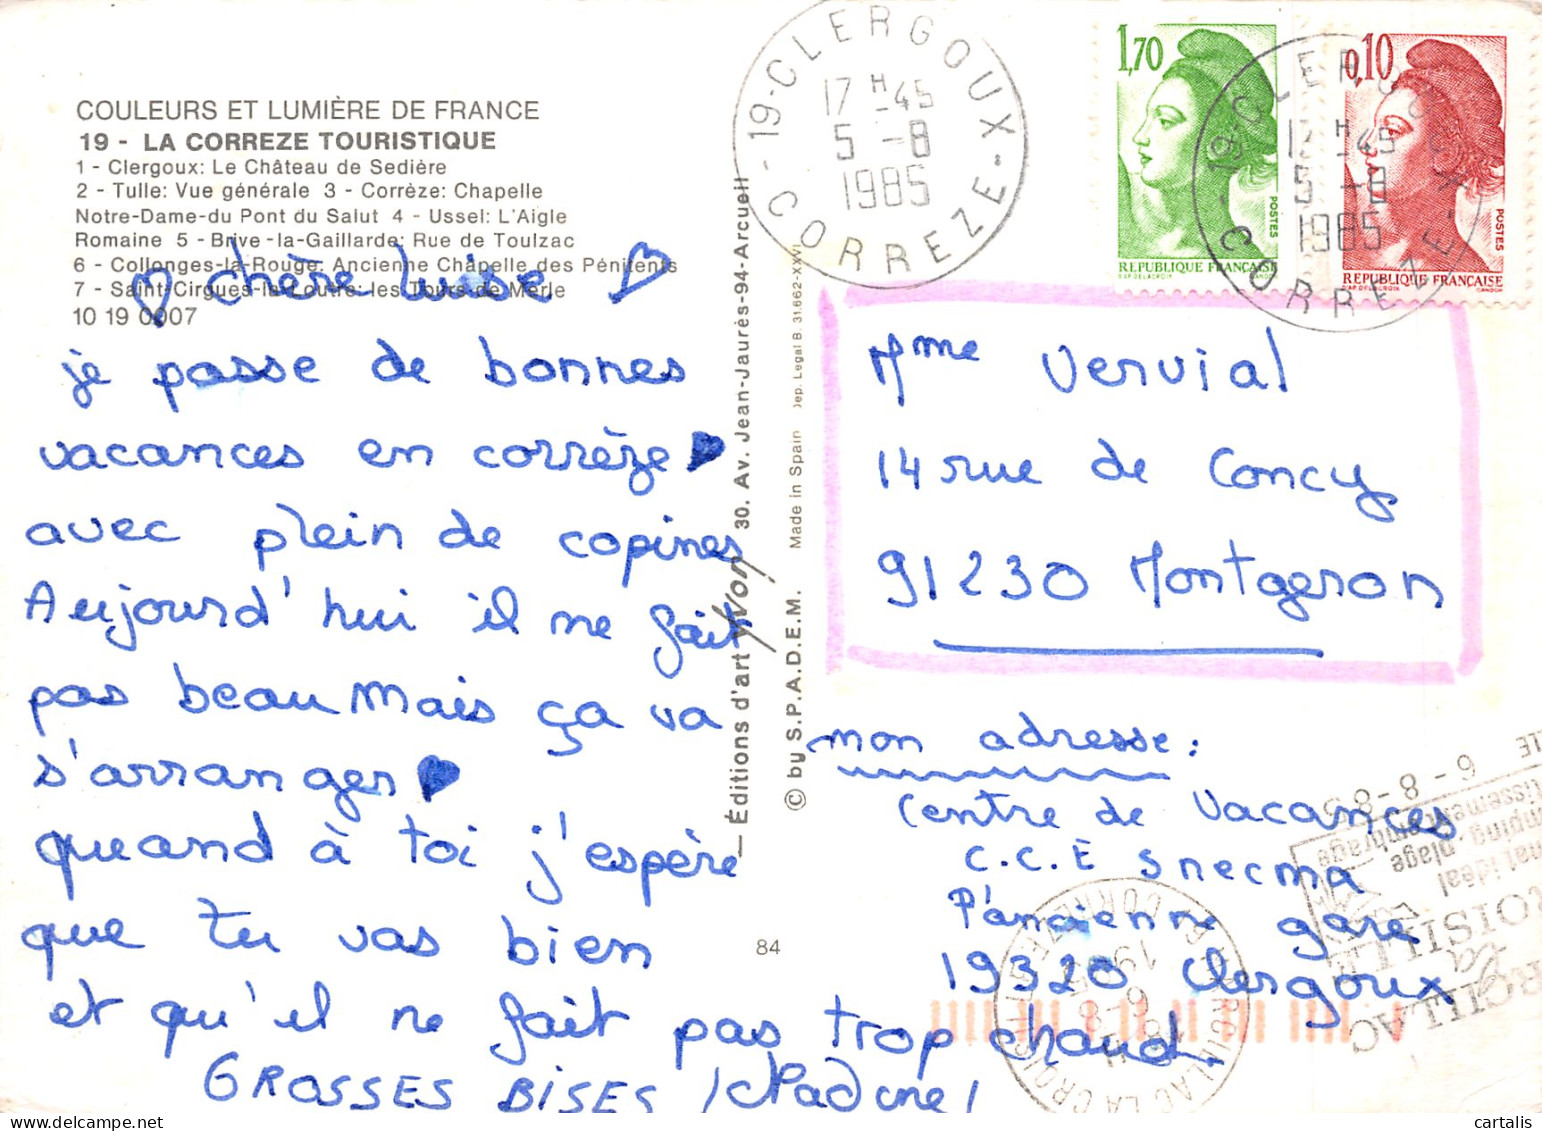 COULEURS ET LUMIÈRE DE FRANCE
19 - LA CORREZE TOURISTIQUE
1 - Clergoux: Le Château de Sedière
2 - Tulle: Vue générale 3 - Corrèze: Chapelle
Notre-Dame-du Pont du Salut 4 - Ussel: L'Aigle
Romaine 5 - Brive-la-Gaillarde: Rue de Toulzac
6 - Collonges-la-Rouge: Ancienne Chapelle des Pénitents
7 - Saint-Cirgues-la-Loutre: les Tours de Merle
10 19 0007
chère Luise
je passe de bonnes
vacances en corrèze
avec plein de copines
Aujourd'hui il ne fait
pas beau Mais ça va
s'arranger
quand à toi j'espère
que tu vas bien
et qu'il ne fait pas trop chaud
GROSSES BISES
— Éditions d'art YVON 30. Av. Jean-Jaurès-94-Arcueil
© by S.P.A.D.E.M. Made in Spain Dep. Legal B. 31.662-XXVI
84
19-CLERGOUX-CORREZE
17H-45
5-8
1985
1,70
POSTES
REPUBLIQUE FRANÇAISE
D'AP DELACROIX GANDON
0,10
POSTES
REPUBLIQUE FRANÇAISE
D'AP DELACROIX GANDON
19-CLERGOUX-CORREZE
17H-45
5-8
1985
Mme Vervial
14 rue de Concy
91230 Montgeron
mon adresse:
Centre de Vacances
C.C.E Snecma
l'ancienne gare
19320 Clergoux
6-8-85
plage
idéal